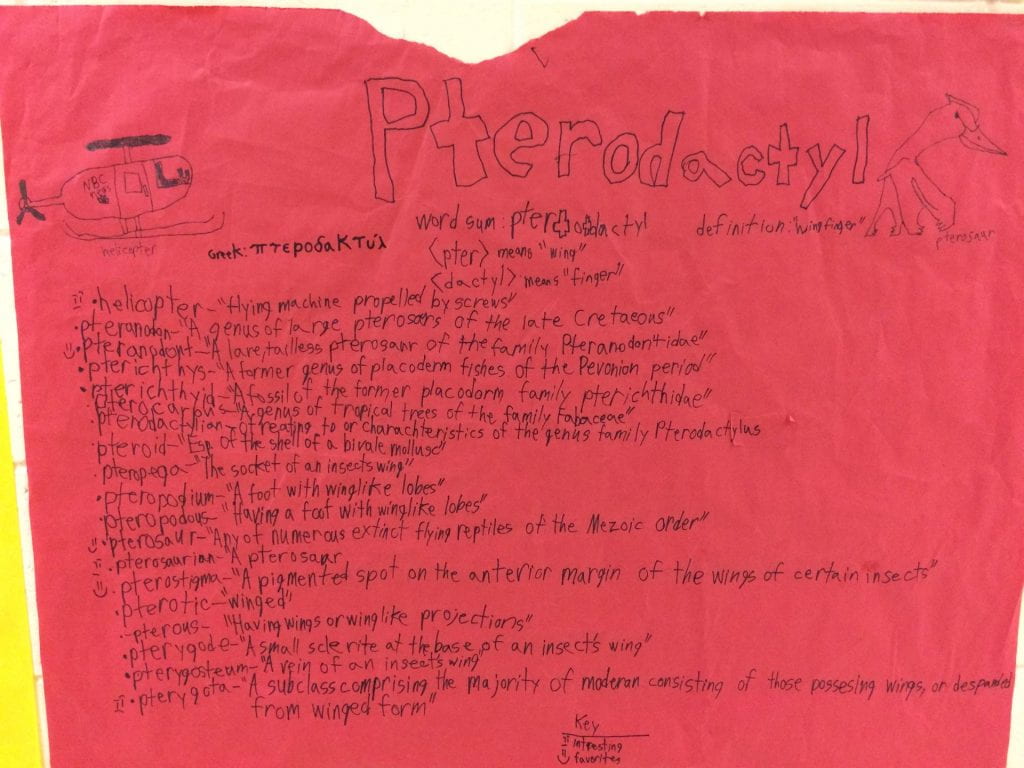 Pterodactyl
NBC
news
helicopter
pterosaur
word sum: pter+o+dactyl
definition: "wingfinger"
Greek: πτεροδακτύλ
<pter> means "wing"
<dactyl> means "finger"
•helicopter-"flying machine propelled by screws"
•pteranodon-"A genus of large pterosars of the late Cretaeous"
•pteranodont-"A lare, tailless pterosaur of the family Pteranodontidae"
•pterichthys-"A former genus of placoderm fishes of the Devonian period"
•pterichthyid-"A fossil of the former placodorm family pterichthidae"
•pterocarpus-"A genus of tropical trees of the family Fabaceae"
pterodactylian-of reating to or charachteristics of the genus family Pterodactylus
•pteroid-"Esp. of the shell of a bivale mollusc"
•pteropega-"The socket of an insects wing"
•pteropodium-"A foot with winglike lobes"
•pteropodous-"Having a foot with winglike lobes"
•pterosaur-"Any of numerous extinct flying reptiles of the Mezoic order"
•pterosaurian-"A pterosaur
•pterostigma-"A pigmented spot on the anterior margin of the wings of certain insects"
•pterotic-"winged"
-pterous-"Having wings or winglike projections"
•pterygode-"A small sclerite at the base of an insect's wing"
•pterygosteum-"A vein of an insect's wing"
•pterygota-"A subclass comprising the majority of moderan consisting of those possesing wings, or despanded
from winged form"
Key
intresting
favorites